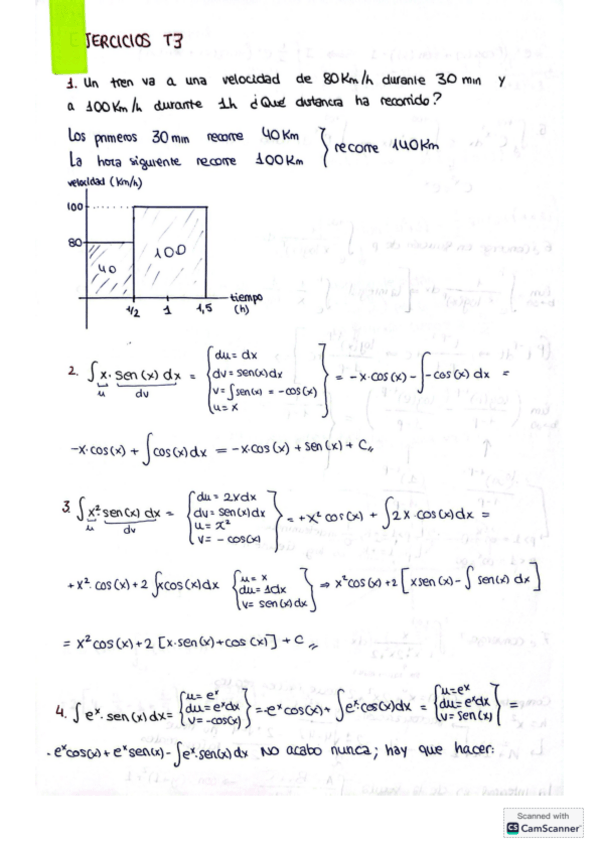 EJERCICIOS T3
1. Un tren va a una velocidad de 80 Km/h durante 30 min y
a 100 Km/h durante 1h ¿Qué distancia ha recorrido?
Los primeros 30 min recorre 40 Km
La hora siguiente recorre 100 Km } recorre 140 Km
velocidad (Km/h)
100
80
40
100
1/2 1 1,5
tiempo (h)
2. ∫ x · sen(x) dx = { du = dx
dv = sen(x)dx
v = ∫sen(x) = -cos(x)
u = x } = -x·cos(x) - ∫-cos(x) dx =
u dv
-x·cos(x) + ∫cos(x)dx = -x·cos(x) + sen(x) + C
3. ∫ x² sen(x) dx = { du = 2xdx
dv = sen(x)dx
u = x²
v = -cos(x) } = +x² cos(x) + ∫2x·cos(x)dx =
u dv
+x²·cos(x) + 2 ∫xcos(x)dx { u = x
du = 1dx
v = sen(x)dx } ⇒ x²cos(x) + 2 [xsen(x) - ∫sen(x) dx]
= x²cos(x) + 2 [x·sen(x) + cos(x)] + C
4. ∫ eˣ · sen(x)dx = { u = eˣ
du = eˣdx
v = -cos(x) } = -eˣcos(x) + ∫eˣcos(x)dx = { u = eˣ
du = eˣdx
v = sen(x) } =
-eˣcos(x) + eˣsen(x) - ∫eˣ·sen(x)dx No acabo nunca; hay que hacer:
Scanned with
CS CamScanner